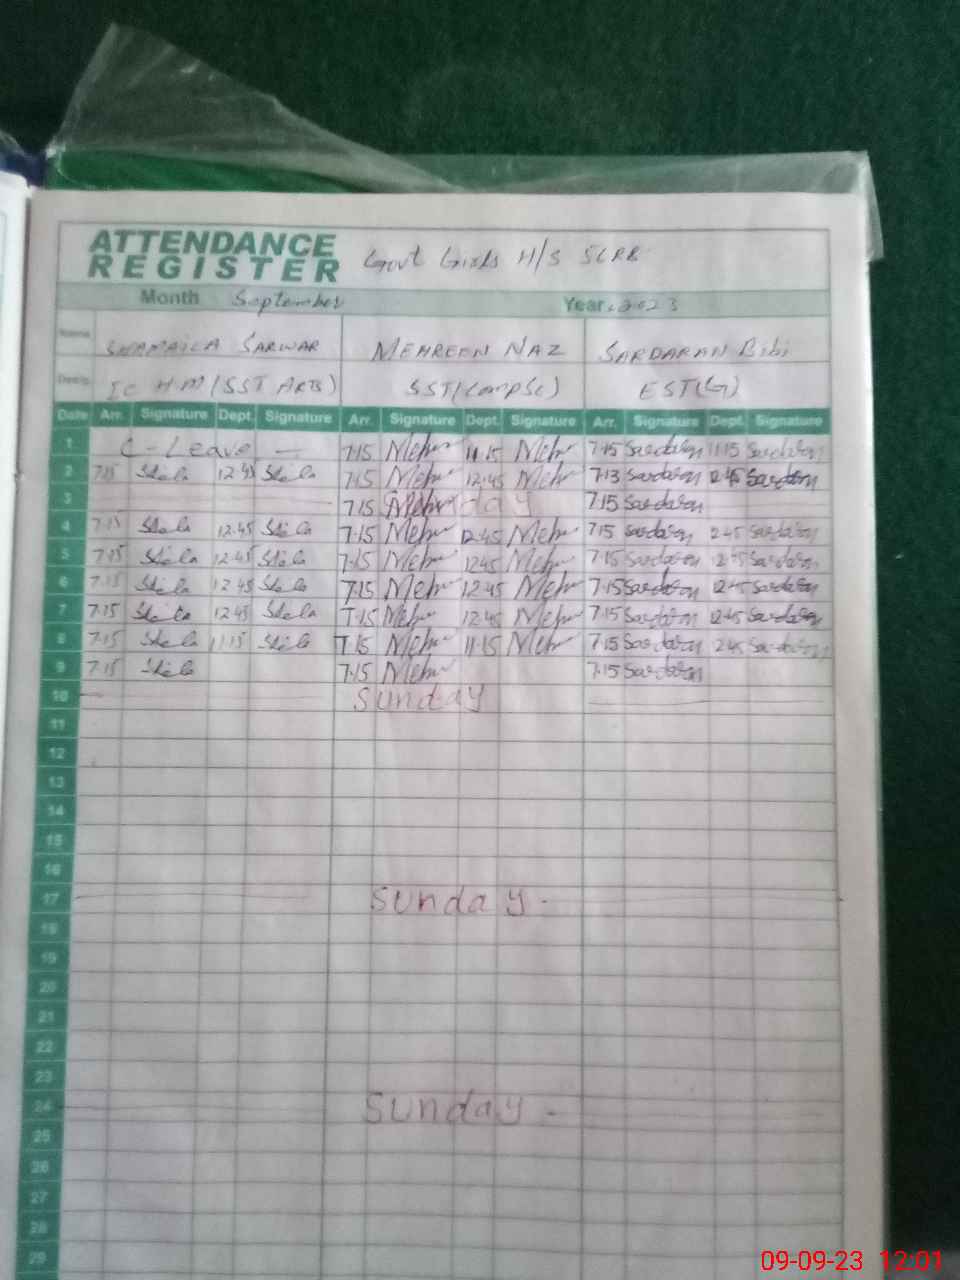 ATTENDANCE REGISTER Govt Girls H/S
Month September Year. 2023
Name SHAMAILA SARWAR MEHREEN NAZ SARDARAN Bibi
Desig. IC H.M (SST ARTS) SST(CompSc) EST(G)
Date Arr. Signature Dept. Signature Arr. Signature Dept. Signature Arr. Signature Dept. Signature
1 C-Leave 7.15 Mehr 11.15 Mehr 7.15 Sardaran 11.15 Sardaran
2 7.15 12.45 7.15 Mehr 12.45 Mehr 7.13 Sardaran 12.45 Sardaran
3 7.15 Mehr Sunday 7.15 Sardaran
4 7.15 12.45 7.15 Mehr 12.45 Mehr 7.15 Sardaran 2.45 Sardaran
5 7.15 12.45 7.15 Mehr 12.45 Mehr 7.15 Sardaran 12.45 Sardaran
6 7.15 12.45 7.15 Mehr 12.45 Mehr 7.15 Sardaran 12.45 Sardaran
7 7.15 12.45 7.15 Mehr 12.45 Mehr 7.15 Sardaran 12.45 Sardaran
8 7.15 11.15 7.15 Mehr 11.15 Mehr 7.15 Sardaran 2.45 Sardaran
9 7.15 7.15 Mehr 7.15 Sardaran
10 Sunday
11
12
13
14
15
16
17 Sunday -
18
19
20
21
22
23
24 Sunday -
25
26
27
28
29
09-09-23 12:01